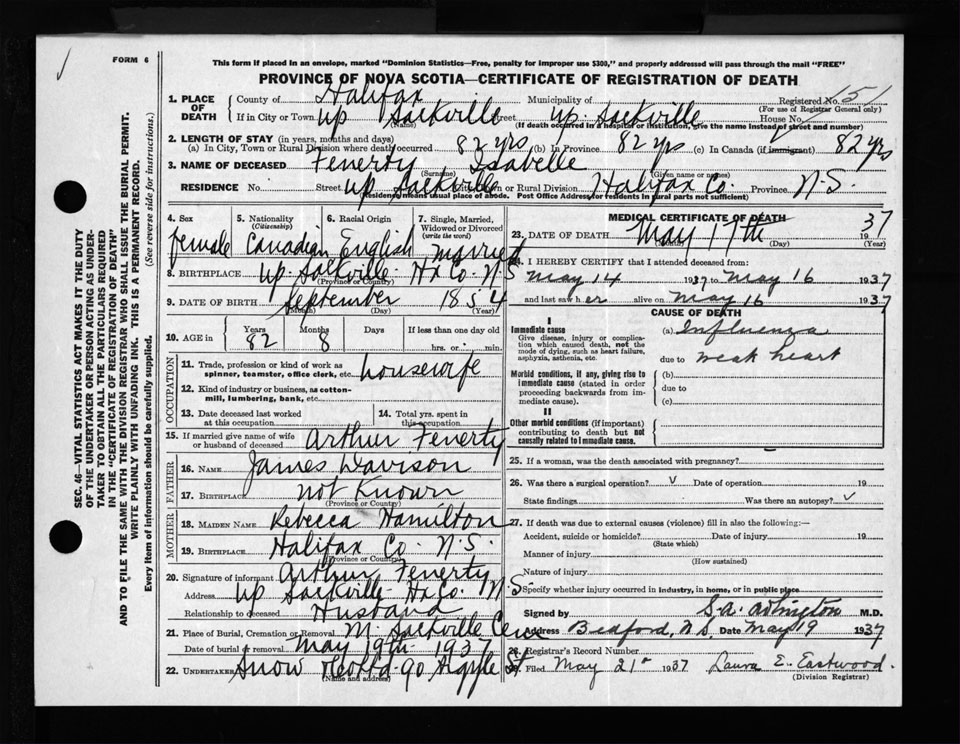 FORM 6
This form if placed in an envelope, marked "Dominion Statistics—Free, penalty for improper use $300," and properly addressed will pass through the mail "FREE"
PROVINCE OF NOVA SCOTIA—CERTIFICATE OF REGISTRATION OF DEATH
1. PLACE OF DEATH County of Halifax Municipality of Registered No. 151
(For use of Registrar General only)
If in City or Town Up Sackville Street Up. Sackville House No.
(Name) (If death occurred in a hospital or institution, give the name instead of street and number)
2. LENGTH OF STAY (in years, months and days)
(a) In City, Town or Rural Division where death occurred 82 yrs (b) In Province 82 yrs (c) In Canada (if immigrant) 82 yrs
3. NAME OF DECEASED Fenerty Isabelle
(Surname) (Given name or names)
RESIDENCE No. Street Up Sackville City, Town or Rural Division Halifax Co. Province N.S.
(Residence means usual place of abode. Post Office Address for residents in rural parts not sufficient)
4. Sex 5. Nationality (Citizenship) 6. Racial Origin 7. Single, Married, Widowed or Divorced (write the word)
female Canadian English married
8. BIRTHPLACE Up Sackville Hx Co. N.S
(Province or Country)
9. DATE OF BIRTH September 1854
(Month) (Day) (Year)
10. AGE in Years Months Days If less than one day old
82 8 hrs. or min.
OCCUPATION
11. Trade, profession or kind of work as spinner, teamster, office clerk, etc. housewife
12. Kind of industry or business, as cotton-mill, lumbering, bank, etc.
13. Date deceased last worked at this occupation 14. Total yrs. spent in this occupation
15. If married give name of wife or husband of deceased Arthur Fenerty
FATHER
16. NAME James Davison
17. BIRTHPLACE not Known
(Province or Country)
MOTHER
18. MAIDEN NAME Rebecca Hamilton
19. BIRTHPLACE Halifax Co. N.S.
(Province or Country)
20. Signature of informant Arthur Fenerty
Address Up Sackville Hx Co. N.S.
Relationship to deceased Husband
21. Place of Burial, Cremation or Removal M. Sackville Cem
Date of burial or removal May 19th 1937
22. Undertaker Snow & Co Ltd. 90 Argyle St
(Name and address)
MEDICAL CERTIFICATE OF DEATH
23. DATE OF DEATH May 17th 1937
(Month) (Day) (Year)
24. I HEREBY CERTIFY that I attended deceased from:
May 14 1937 to May 16 1937
and last saw her alive on May 16 1937
CAUSE OF DEATH
I
Immediate cause (a) Influenza
Give disease, injury or complication which caused death, not the mode of dying, such as heart failure, asphyxia, asthenia, etc.
due to weak heart
Morbid conditions, if any, giving rise to immediate cause (stated in order proceeding backwards from immediate cause).
(b)
due to
(c)
II
Other morbid conditions (if important) contributing to death but not causally related to immediate cause.
25. If a woman, was the death associated with pregnancy?
26. Was there a surgical operation? V Date of operation 19
State findings Was there an autopsy? V
27. If death was due to external causes (violence) fill in also the following:—
Accident, suicide or homicide? Date of injury 19
(State which)
Manner of injury
(How sustained)
Nature of injury
Specify whether injury occurred in industry, in home, or in public place
Signed by M.D.
Address Bedford, N.S. Date May 19 1937
28. Registrar's Record Number
29. Filed May 21st 1937 Laura E. Eastwood.
(Division Registrar)
SEC. 46—VITAL STATISTICS ACT MAKES IT THE DUTY
OF THE UNDERTAKER OR PERSON ACTING AS UNDER-
TAKER TO OBTAIN ALL THE PARTICULARS REQUIRED
IN THE "CERTIFICATE OF REGISTRATION OF DEATH"
AND TO FILE THE SAME WITH THE DIVISION REGISTRAR WHO SHALL ISSUE THE BURIAL PERMIT.
WRITE PLAINLY WITH UNFADING INK. THIS IS A PERMANENT RECORD.
Every item of information should be carefully supplied. (See reverse side for instructions.)